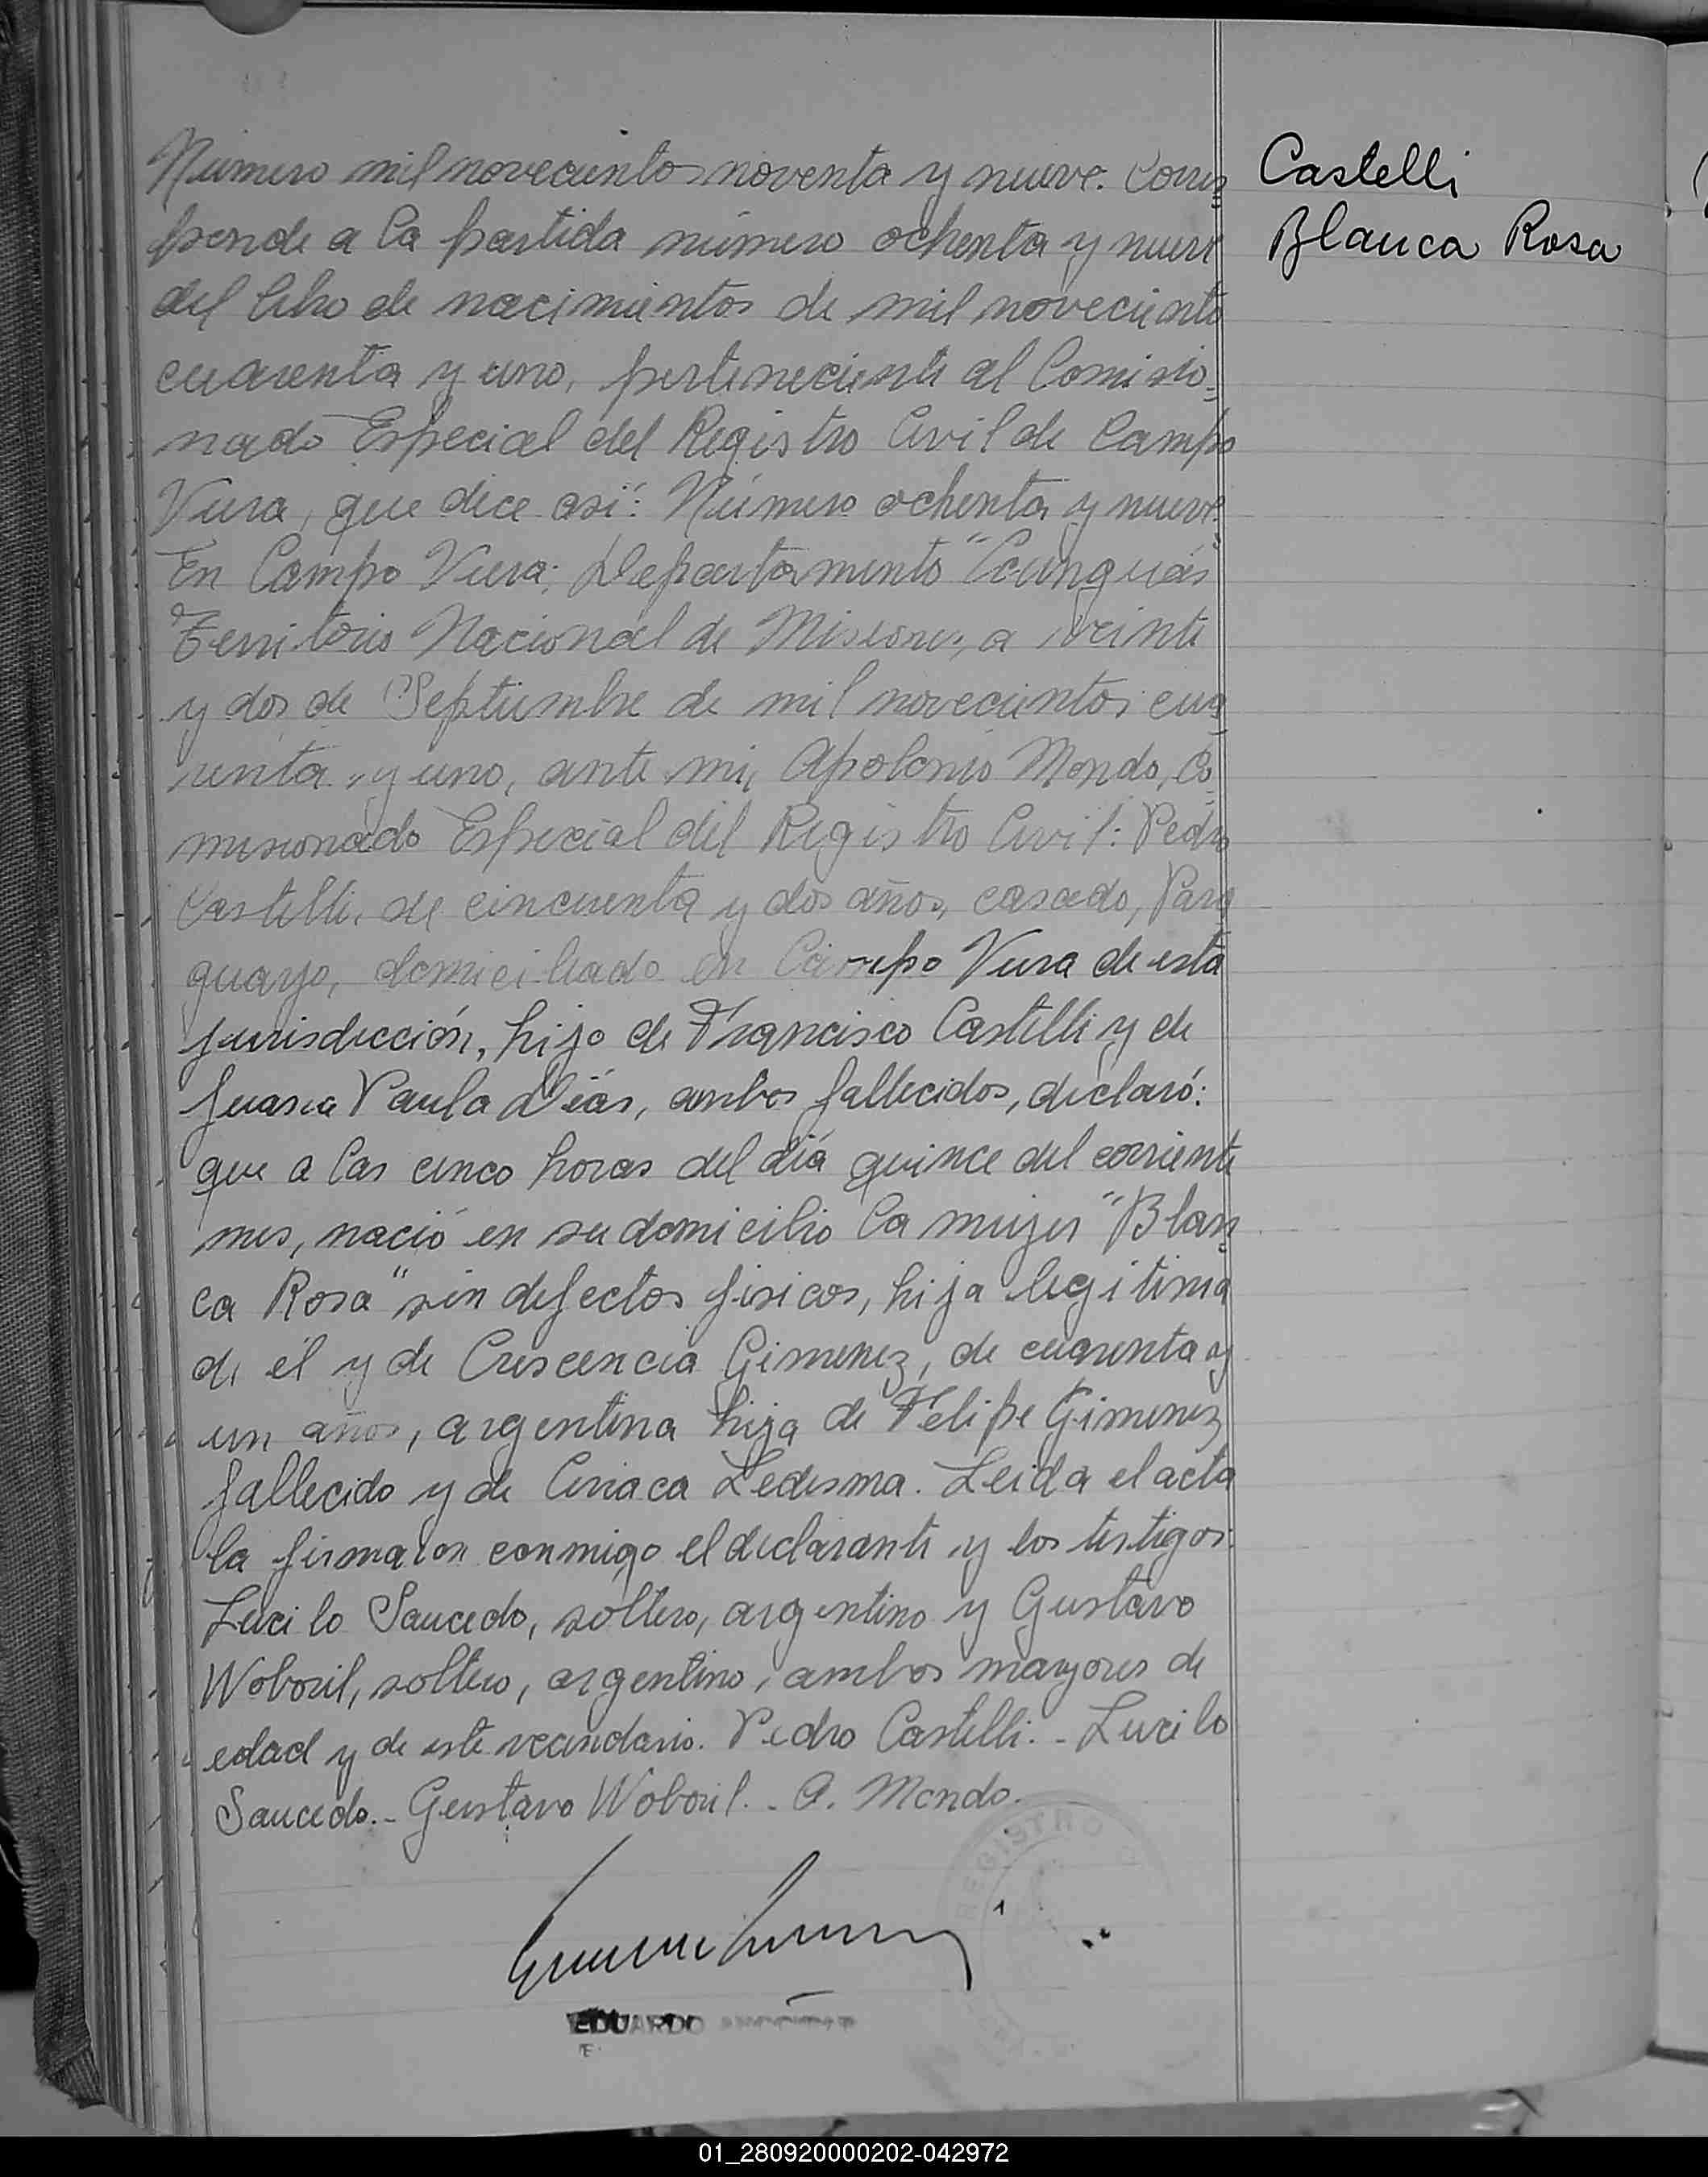 Número mil novecientos noventa y nueve. Corres
Castelli
ponde a la partida número ochenta y nueve
Blanca Rosa
del libro de nacimientos de mil novecientos
cuarenta y uno, perteneciente al Comisio=
nado Especial del Registro Civil de Campo
Viera, que dice así: Número ochenta y nueve.
En Campo Viera; Departamento "Cainguás"
Territorio Nacional de Misiones, a veinte
y dos de Septiembre de mil novecientos cua
renta y uno, ante mi, Apolonio Mondo, Co=
misionado Especial del Registro Civil: Pedro
Castelli, de cincuenta y dos años, casado, Para
guayo, domiciliado en Campo Viera de esta
jurisdicción, hijo de Francisco Castelli y de
Juana Paula Diás, ambos fallecidos, declaró:
que a las cinco horas del día quince del corriente
mes, nació en su domicilio la mujer "Blan=
ca Rosa" sin defectos fisicos, hija legitima
de él y de Crescencia Gimenez, de cuarenta y
un años, argentina hija de Felipe Gimenez
fallecido y de Ciriaca Ledesma. Leida el acta
la firmaron conmigo el declarante y los testigos:
Lucilo Saucedo, soltero, argentino y Gustavo
Woboril, soltero, argentino, ambos mayores de
edad y de este vecindario. Pedro Castelli.- Lucilo
Saucedo.- Gustavo Woboril.- A. Mondo.
REGISTRO
EDUARDO
01_280920000202-042972